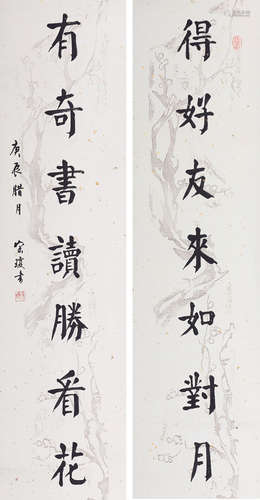 得好友來如對月
有奇書讀勝看花
庚辰腊月